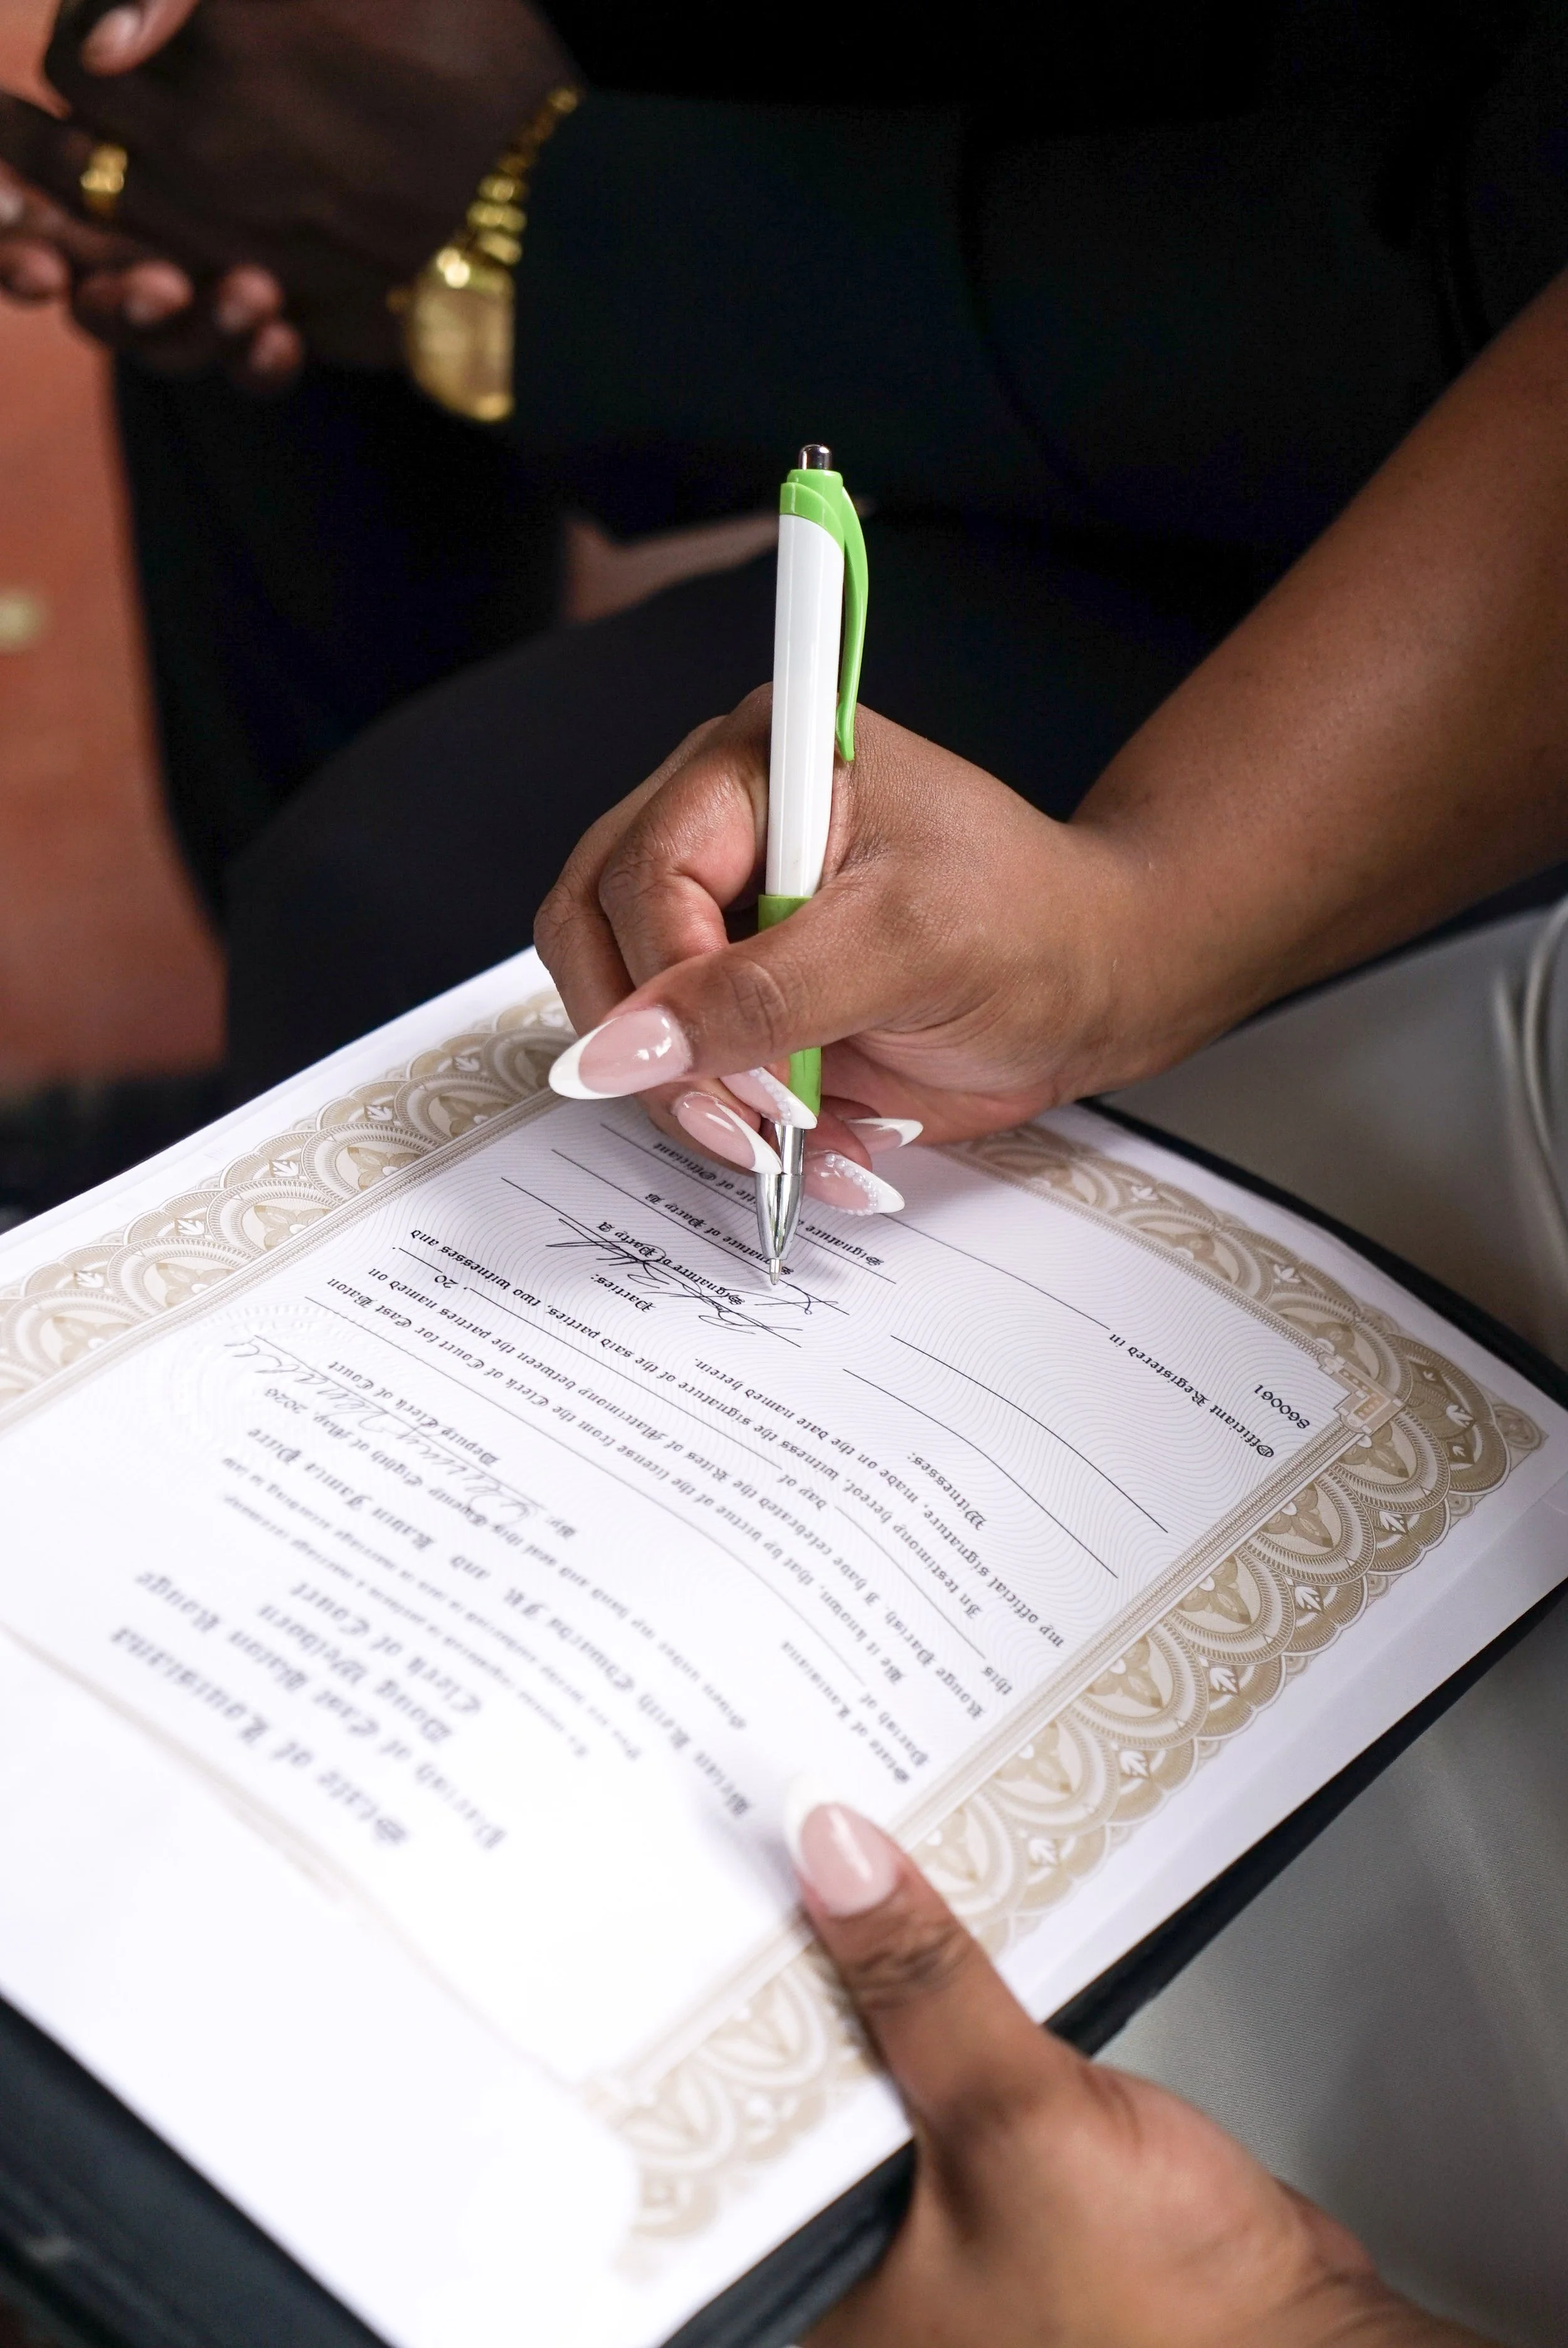 State of Louisiana
Parish of East Baton Rouge
Doug Welborn
Clerk of Court
To
You are
in marriage according to law
Keith Edwards JR. and
Given under my hand and seal this Twenty Eighth of May, 2026
By:
Deputy Clerk of Court
State of Louisiana
Parish of
Be it known, that by virtue of the license from the Clerk of Court for East Baton
Rouge Parish, I have celebrated the Rites of Matrimony between the parties named on
this day of , 20 .
In testimony hereof, witness the signature of the said parties, two witnesses and
my official signature, made on the date named herein.
Witnesses: Parties:
Signature of Party A
Signature of Party B
Signature of Officiant
Officiant Registered in
860061